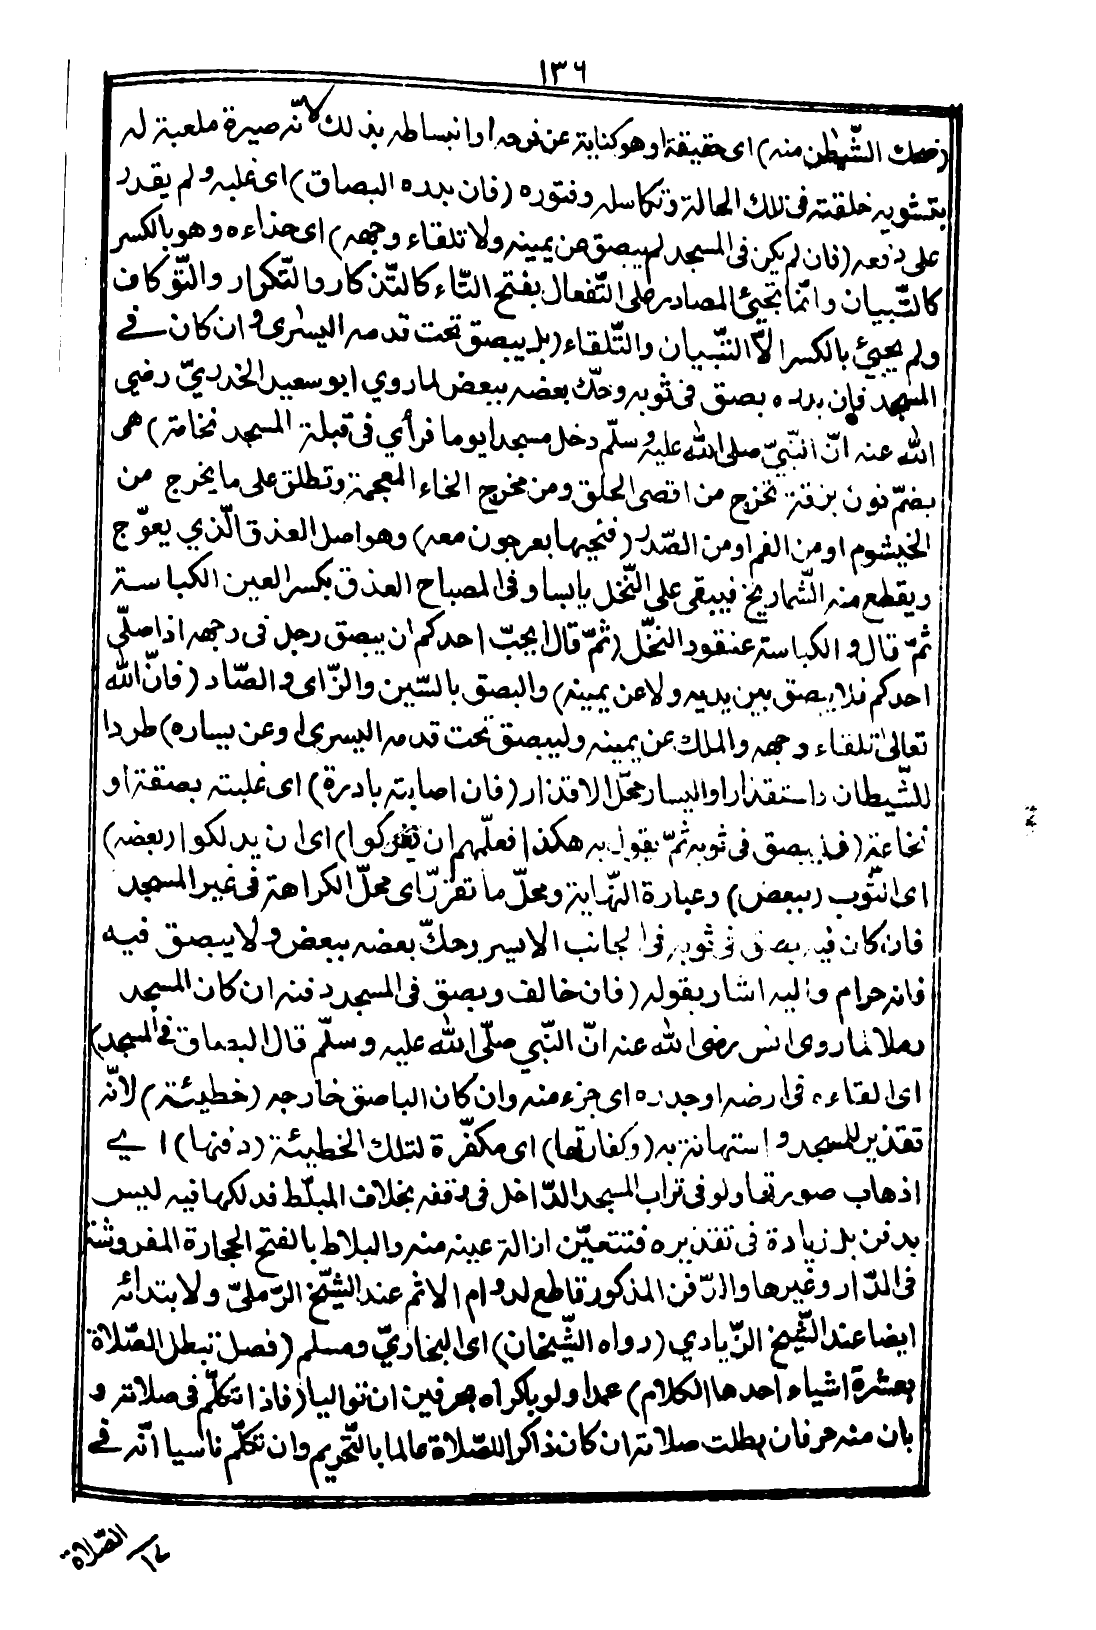 ١٣٦
(ضحك الشّيطن منه) اى حقيقة او هو كناية عن فرحه او انبساطه بذلك لانّه صيرة ملعبة له
بتشويه خلقته فى تلك الحالة وتكاسله وفتوره (فان بدده البصاق) اى غلبه ولم يقدر
على دفعه (فان لم يكن فى المسجد لم يبصق عن يمينه ولا تلقاء وجهه) اى حذاءه وهو بالكسر
كالتّبيان وانّما تجيئ المصادر على التّفعال بفتح التّاء كالتّذكار والتّكرار والتّوكاف
ولم يجيئ بالكسر الّا التّبيان والتّلقاء (بل يبصق تحت قدمه اليسرى وان كان فے
المسجد فإن بدده بصق فى ثوبه وحكّ بعضه ببعض لما روي ابو سعيد الخدريّ رضي
الله عنه انّ النّبيّ صلى الله عليه وسلّم دخل مسجدا يوما فرأي فى قبلة المسجد نخامة) هى
بضمّ نون بزقة تخرج من اقصى الحلق ومن مخرج الخاء المعجمة وتطلق على ما يخرج من
الخيشوم او من الفم او من الصّدر (فنجّها بعرجون معه) وهو اصل العذق الّذي يعوّج
ويقطع منه الشّماريخ فيبقى على النّخل يابسا وفى المصباح العذق بكسر العين الكباسة
ثمّ قال والكباسة عنقود النّخل (ثمّ قال ايجبّ احدكم ان يبصق رجل فى وجهه اذا صلّى
احدكم فلا يبصق بين يديه ولا عن يمينه) والبصق بالسّين والزّاى والصّاد (فانّ الله
تعالى تلقاء وجهه والملك عن يمينه وليبصق تحت قدمه اليسرى او عن يساره) طردا
للشّيطان واستقذارا واليسار محلّ الاقذار (فان اصابته بادرة) اى غلبته بصقة او
نخاعة (فليبصق فى ثوبه ثمّ يقول به هكذا فعلّمهم ان يفركوا) اى ان يدلكوا (بعضه)
اى الثّوب (ببعض) وعبارة النّهاية ومحلّ ما تقرّر اى محلّ الكراهة فى غير المسجد
فان كان فيه بصق فى ثوبه فى الجانب الايسر وحكّ بعضه ببعض ولا يبصق فيه
فانه حرام واليه اشار بقوله (فان خالف وبصق فى المسجد دفنه ان كان المسجد
رملا لما روى انس رضى الله عنه انّ النّبي صلّى الله عليه وسلّم قال البصاق فى المسجد)
اى القاءه فى ارضه او جدره اى جزء منه وان كان الباصق خارجه (خطيئة) لانّه
تقذير للمسجد واستهانة به (وكفارتها) اى مكفّرة لتلك الخطيئة (دفنها) اے
اذهاب صورتها ولو فى تراب المسجد الدّاخل فى وقفه بخلاف المبلّط فدلكها فيه ليس
بدفن بل زيادة فى تقذيره فتتعيّن ازالة عينه منه والبلاط بالفتح الحجارة المفروشة
فى الدّار وغيرها والدّفن المذكور قاطع لدوام الاثم عند الشّيخ الرّمليّ ولابتدائه
ايضا عند الشّيخ الزّيادي (رواه الشّيخان) اى البخاريّ ومسلم (فصل تبطل الصّلاة
بعشرة اشياء احدها الكلام) عمدا ولو باكراه بحرفين ان تواليا (فاذا تكلّم فى صلاته و
بان منه حرفان بطلت صلاته ان كان ذاكرا للصّلاة عالما بالتّحريم وان تكلّم ناسيا انّه فے
الصّلاة